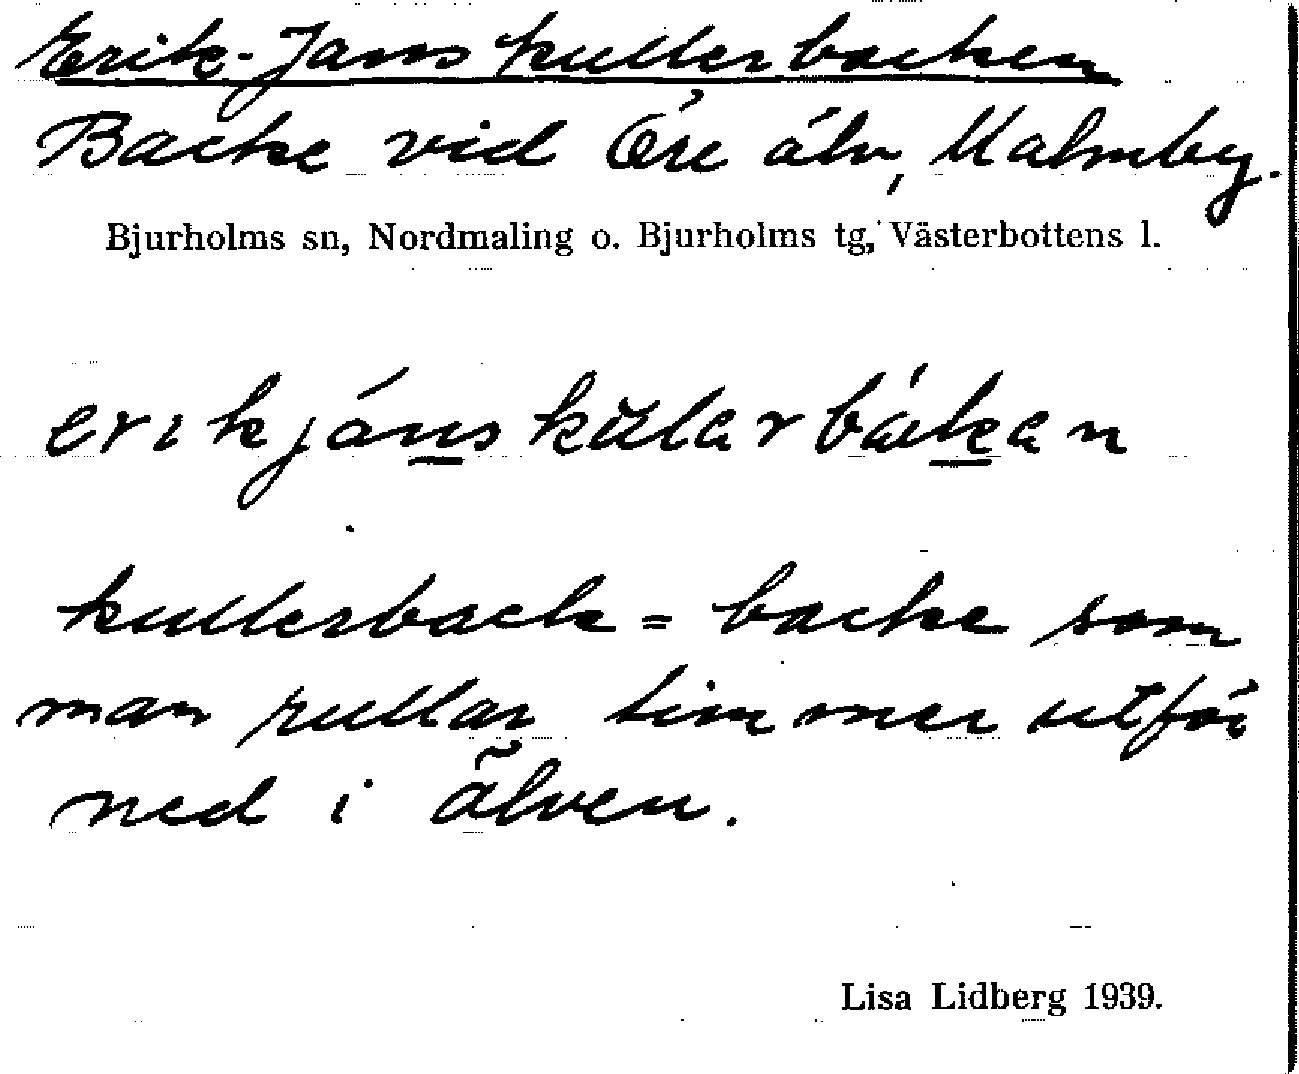 Erik-Jans kullerbacken
Backe vid Öre älv, Malmby.
Bjurholms sn, Nordmaling o. Bjurholms tg, Västerbottens l.
erikjánskŭlarbákan
kullerback = backe som
man rullar timmer utför
ned i älven.
Lisa Lidberg 1939.